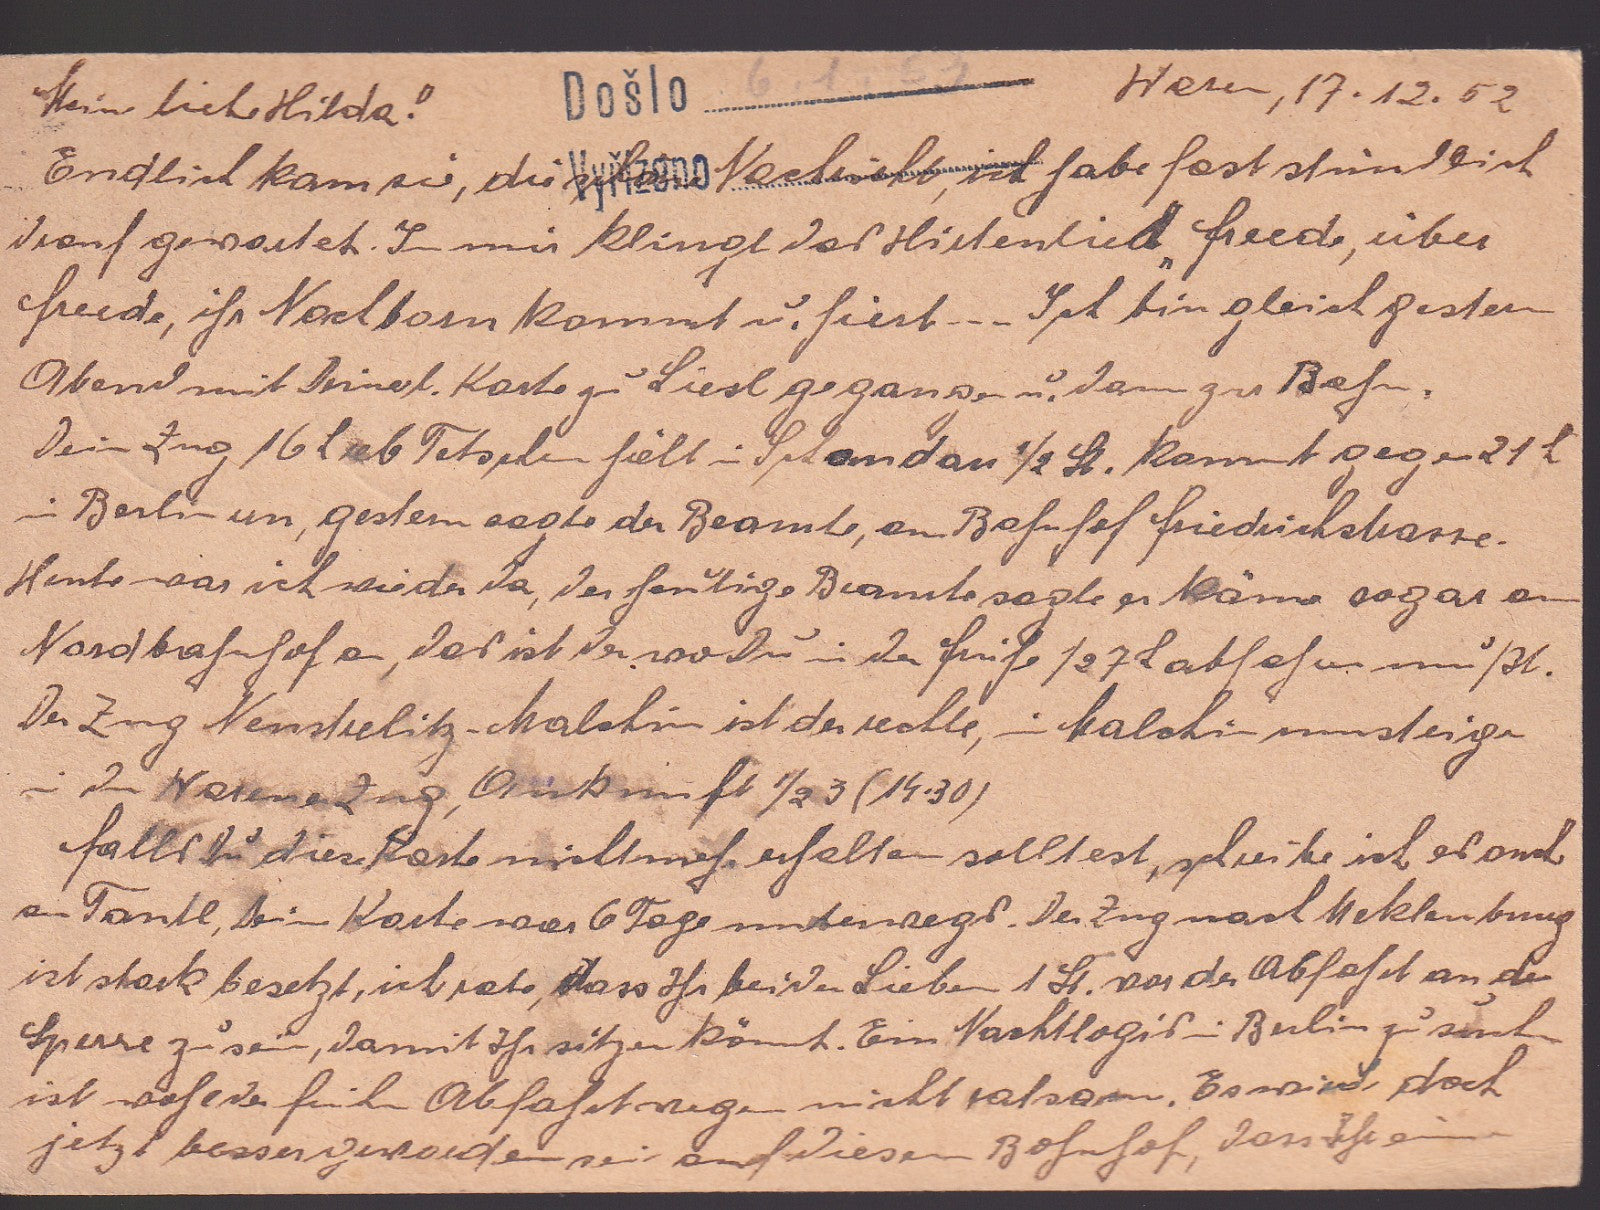 Meine liebe Hilda!
Došlo 6.1.53
Waren, 17.12.52
Vyřízeno
Endlich kam sie, die Nachricht, ich habe fast stündlich
drauf gewartet. In mir klingt das Hirtenlied „Freede, über
Freede, ihr Nachborn kommt u. hiert --- Ich bin gleich gestern
Abend mit Deiner l. Karte zu Liesl gegangen u. dann zur Bahn.
Dein Zug 16 h ab Tetschen hält in Schandau 1/2 St. kommt gegen 21 h
in Berlin an, gestern sagte der Beamte, am Bahnhof Friedrichstrasse.
Heute war ich wieder da, der heutige Beamte sagte er käme sogar am
Nordbahnhof an, das ist der wo Du in der Frühe 1/2 7 h abfahren mußt.
Der Zug Neustrelitz-Malchin ist der rechte, in Malchin umsteigen
in den Warener Zug, Ankunft 1/2 3 (14.30)
Falls Du diese Karte nicht mehr erhalten solltest, schreibe ich es auch
an Tantl, Deine Karte war 6 Tage unterwegs. Der Zug nach Meklenburg
ist stark besetzt, ich rate, dass Ihr beiden Lieben 1 St. vor der Abfahrt an der
Sperre zu sein, damit Ihr sitzen könnt. Ein Nachtlogis in Berlin zu suchen
ist der frühen Abfahrt wegen nicht ratsam. Es wird doch
jetzt besser geworden sein auf diesem Bahnhof, dass Ihr